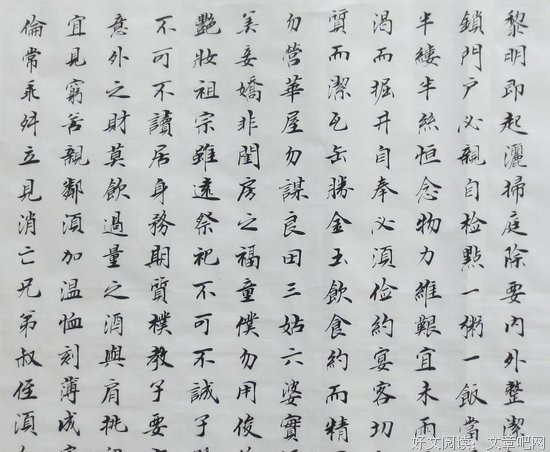 黎明即起灑掃庭除要内外整潔
鎖門户必親自检點一粥一飯當
半縷半絲恒念物力維艱宜未雨
渴而掘井自奉必須俭約宴客切
質而潔瓦缶勝金玉飲食約而精
勿營華屋勿謀良田三姑六婆實
美妾嬌非閨房之福童僕勿用俊
艷妝祖宗雖遠祭祀不可不誠子
不可不讀居身務期質樸教子要
意外之財莫飲過量之酒與肩挑
宜見窮苦親鄰須加温恤刻薄成
倫常乖舛立見消亡兄弟叔侄須
好文阅读：文章吧网